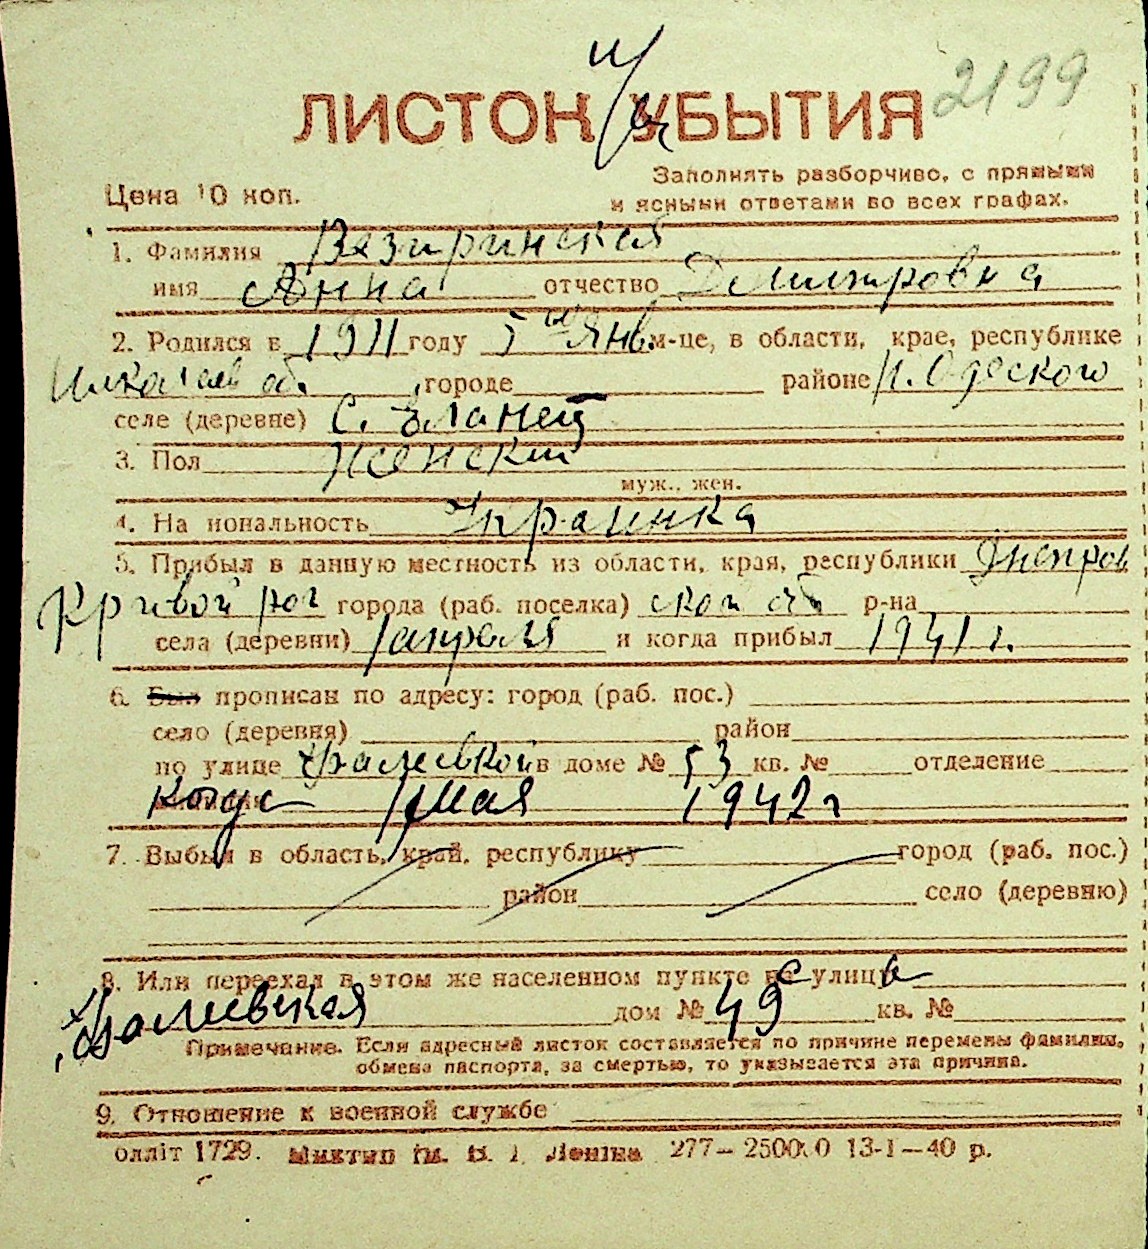 2199
ЛИСТОК УБЫТИЯ
Цена 10 коп.
Заполнять разборчиво, с прямыми
и ясными ответами во всех графах.
1. Фамилия
имя Анна отчество Дмитровна
2. Родился в 1911 году 5 янв. м-це, в области, крае, республике
Николаев об. , городе районе Н. Одеского
селе (деревне) С.
3. Пол Женский
муж., жен.
4. На иональность Украинка
5. Прибыл в данную местность из области, края, республики Днепров
Кривой рог города (раб. поселка) ской об р-на
села (деревни) 1 апреля и когда прибыл 1941 г.
6. Был прописан по адресу: город (раб. пос.)
село (деревня) район
по улице в доме № 53 кв. № отделение
когда 1 мая 1942 г
7. Выбыл в область, край, республику город (раб. пос.)
район село (деревню)
8. Или переехал в этом же населенном пункте с улицы
дом № 49 кв. №
Примечание. Если адресный листок составляется по причине перемены фамилии,
обмена паспорта, за смертью, то указывается эта причина.
9. Отношение к военной службе
олліт 1729. Миктип ім. В. І. Леніна 277—25000 13-1—40 р.